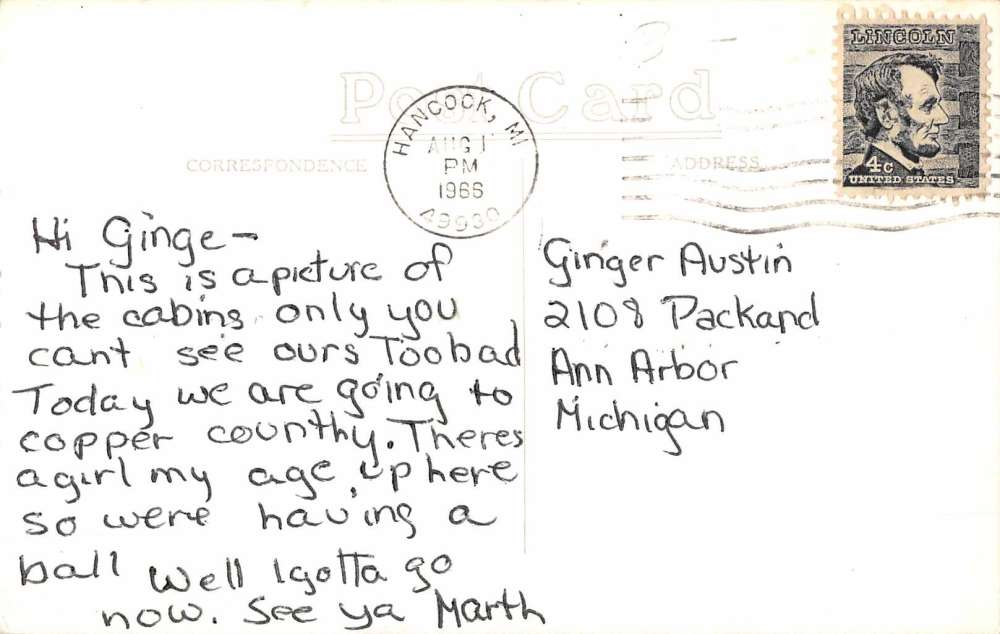 Post Card
CORRESPONDENCE
ADDRESS
HANCOCK, MI
AUG 1
PM
1966
49930
LINCOLN
4c
UNITED STATES
Hi Ginge-
This is a picture of
the cabins only you
cant see ours Toobad
Today we are going to
copper counthy. Theres
a girl my age up here
so were having a
ball Well I gotta go
now. See ya Marth
Ginger Austin
2108 Packand
Ann Arbor
Michigan